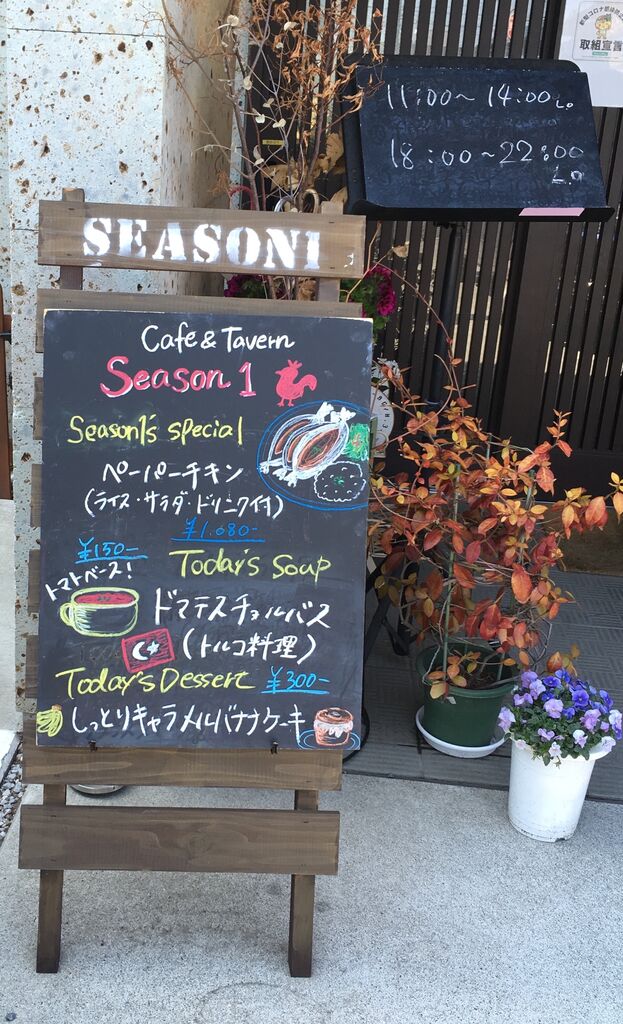 取組宣言
11:00~ 14:00 L.O
18:00~22:00
L.O
SEASON1
Cafe & Tavern
Season 1
Season1's special
ペーパーチキン
(ライス・サラダ・ドリンク付)
¥1.680-
¥150-
Today's Soup
トマトベース!
ドマテスチョルバス
(トルコ料理)
Today's Dessert ¥300-
しっとりキャラメルバナナケーキ